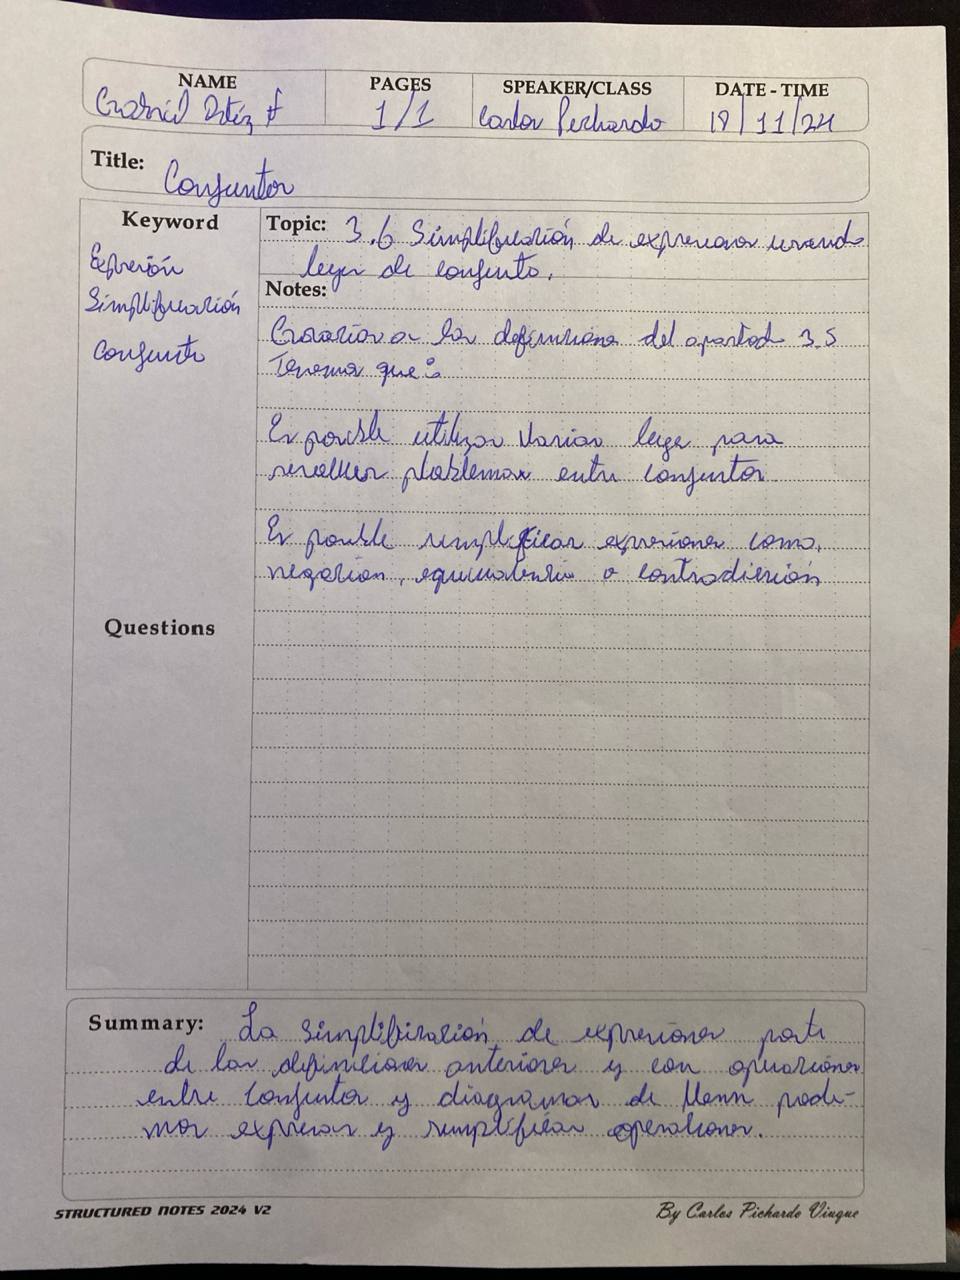 NAME PAGES SPEAKER/CLASS DATE - TIME
Ortíz 1/1 Carlos Pichardo 18/11/24
Title: Conjuntos
Keyword
Expresión
Simplificación
Conjunto
Questions
Topic: 3.6 Simplificación de expresiones usando
leyes de conjunto.
Notes:
Gracias a las definiciones del apartado 3.5
Tenemos que:
Es posible utilizar varias leyes para
resolver problemas entre conjuntos
Es posible simplificar expresiones como,
negación, equivalencia o contradicción
Summary: La simplificación de expresiones parte
de las definiciones anteriores y con operaciones
entre conjuntos y diagramas de Venn pode-
mos expresar y simplificar operaciones.
STRUCTURED NOTES 2024 V2
By Carlos Pichardo Viuque